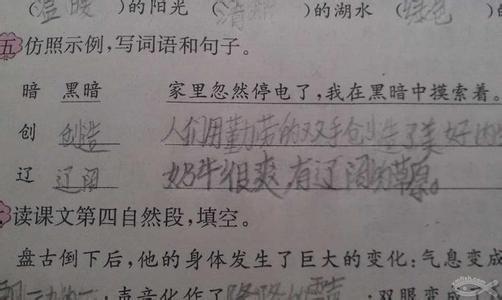 (温暖)的阳光 (清)的湖水 (绿色)
五 仿照示例,写词语和句子。
暗 黑暗 家里忽然停电了,我在黑暗中摸索着。
创 创造 人们用勤劳的双手创造了美好的
辽 辽阔 奶牛很爽,有辽阔的草原。
读课文第四自然段,填空。
盘古倒下后,他的身体发生了巨大的变化:气息变成
声音化作了隆隆的 ;双眼变